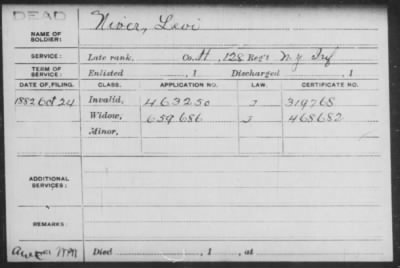 DEAD
NAME OF SOLDIER: Niver, Levi
SERVICE: Late rank, Co. H, 128 Reg't N.Y. Inf
TERM OF SERVICE: Enlisted , 1 Discharged , 1
DATE OF FILING. CLASS. APPLICATION NO. LAW. CERTIFICATE NO.
1882 Oct 24 Invalid, 463250 J 319768
Widow, 659686 J 468682
Minor,
ADDITIONAL SERVICES:
REMARKS:
Died , 1 , at